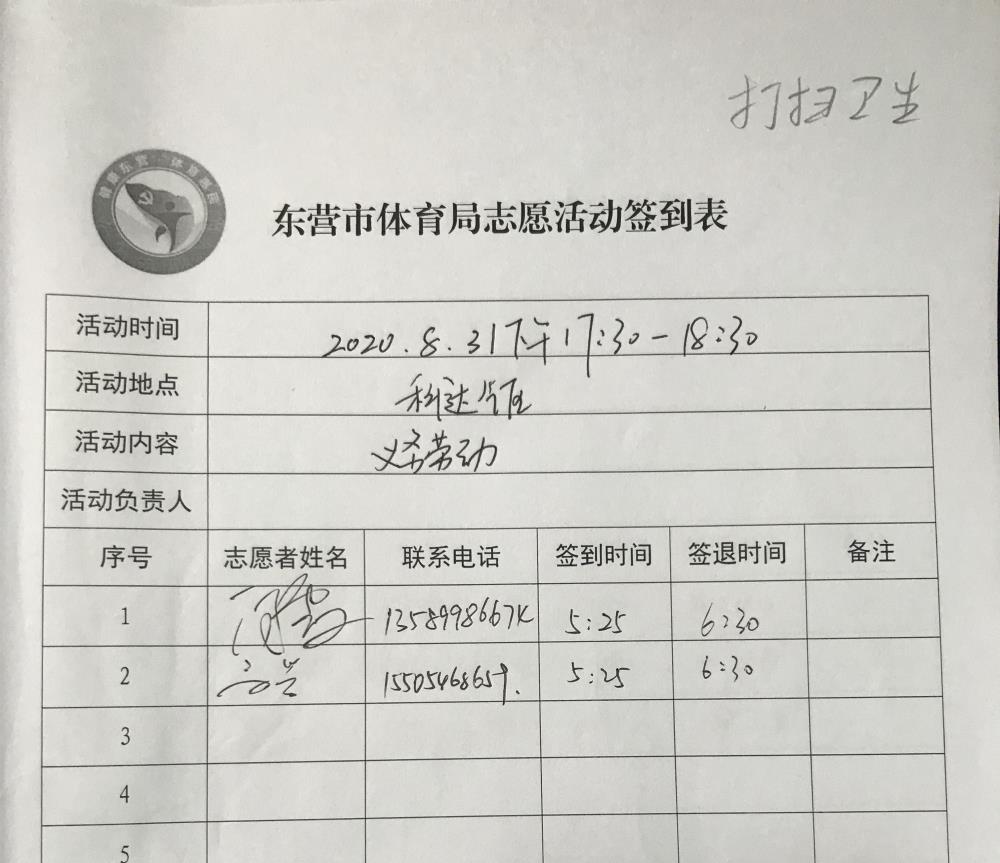 打扫卫生
健康东营 体育惠民
东营市体育局志愿活动签到表
活动时间 2020.8.31下午17:30-18:30
活动地点 科达
活动内容 义务劳动
活动负责人
序号 志愿者姓名 联系电话 签到时间 签退时间 备注
1 5:25 6:30
2 15505468659. 5:25 6:30
3
4
5